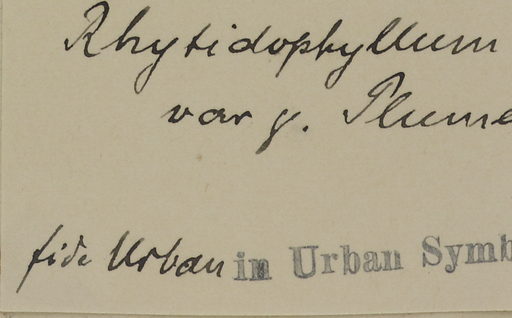 Rhytidophyllum
var γ. Plume
fide Urban in Urban Symb